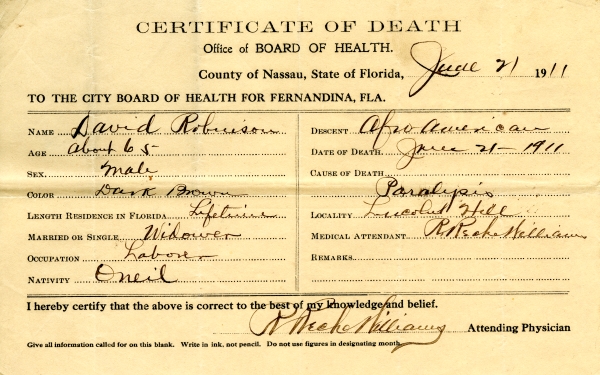 CERTIFICATE OF DEATH
Office of BOARD OF HEALTH.
County of Nassau, State of Florida, June 21 1911
TO THE CITY BOARD OF HEALTH FOR FERNANDINA, FLA.
NAME David Robinson
AGE about 65
SEX Male
COLOR Dark Brown
LENGTH RESIDENCE IN FLORIDA Lifetime
MARRIED OR SINGLE Widower
OCCUPATION Laborer
NATIVITY Oneil
DESCENT Afro American
DATE OF DEATH June 21 - 1911
CAUSE OF DEATH
Paralysis
LOCALITY Lincoln Hill
MEDICAL ATTENDANT R Reche Williams
REMARKS
I hereby certify that the above is correct to the best of my knowledge and belief.
R Reche Williams Attending Physician
Give all information called for on this blank. Write in ink, not pencil. Do not use figures in designating month.